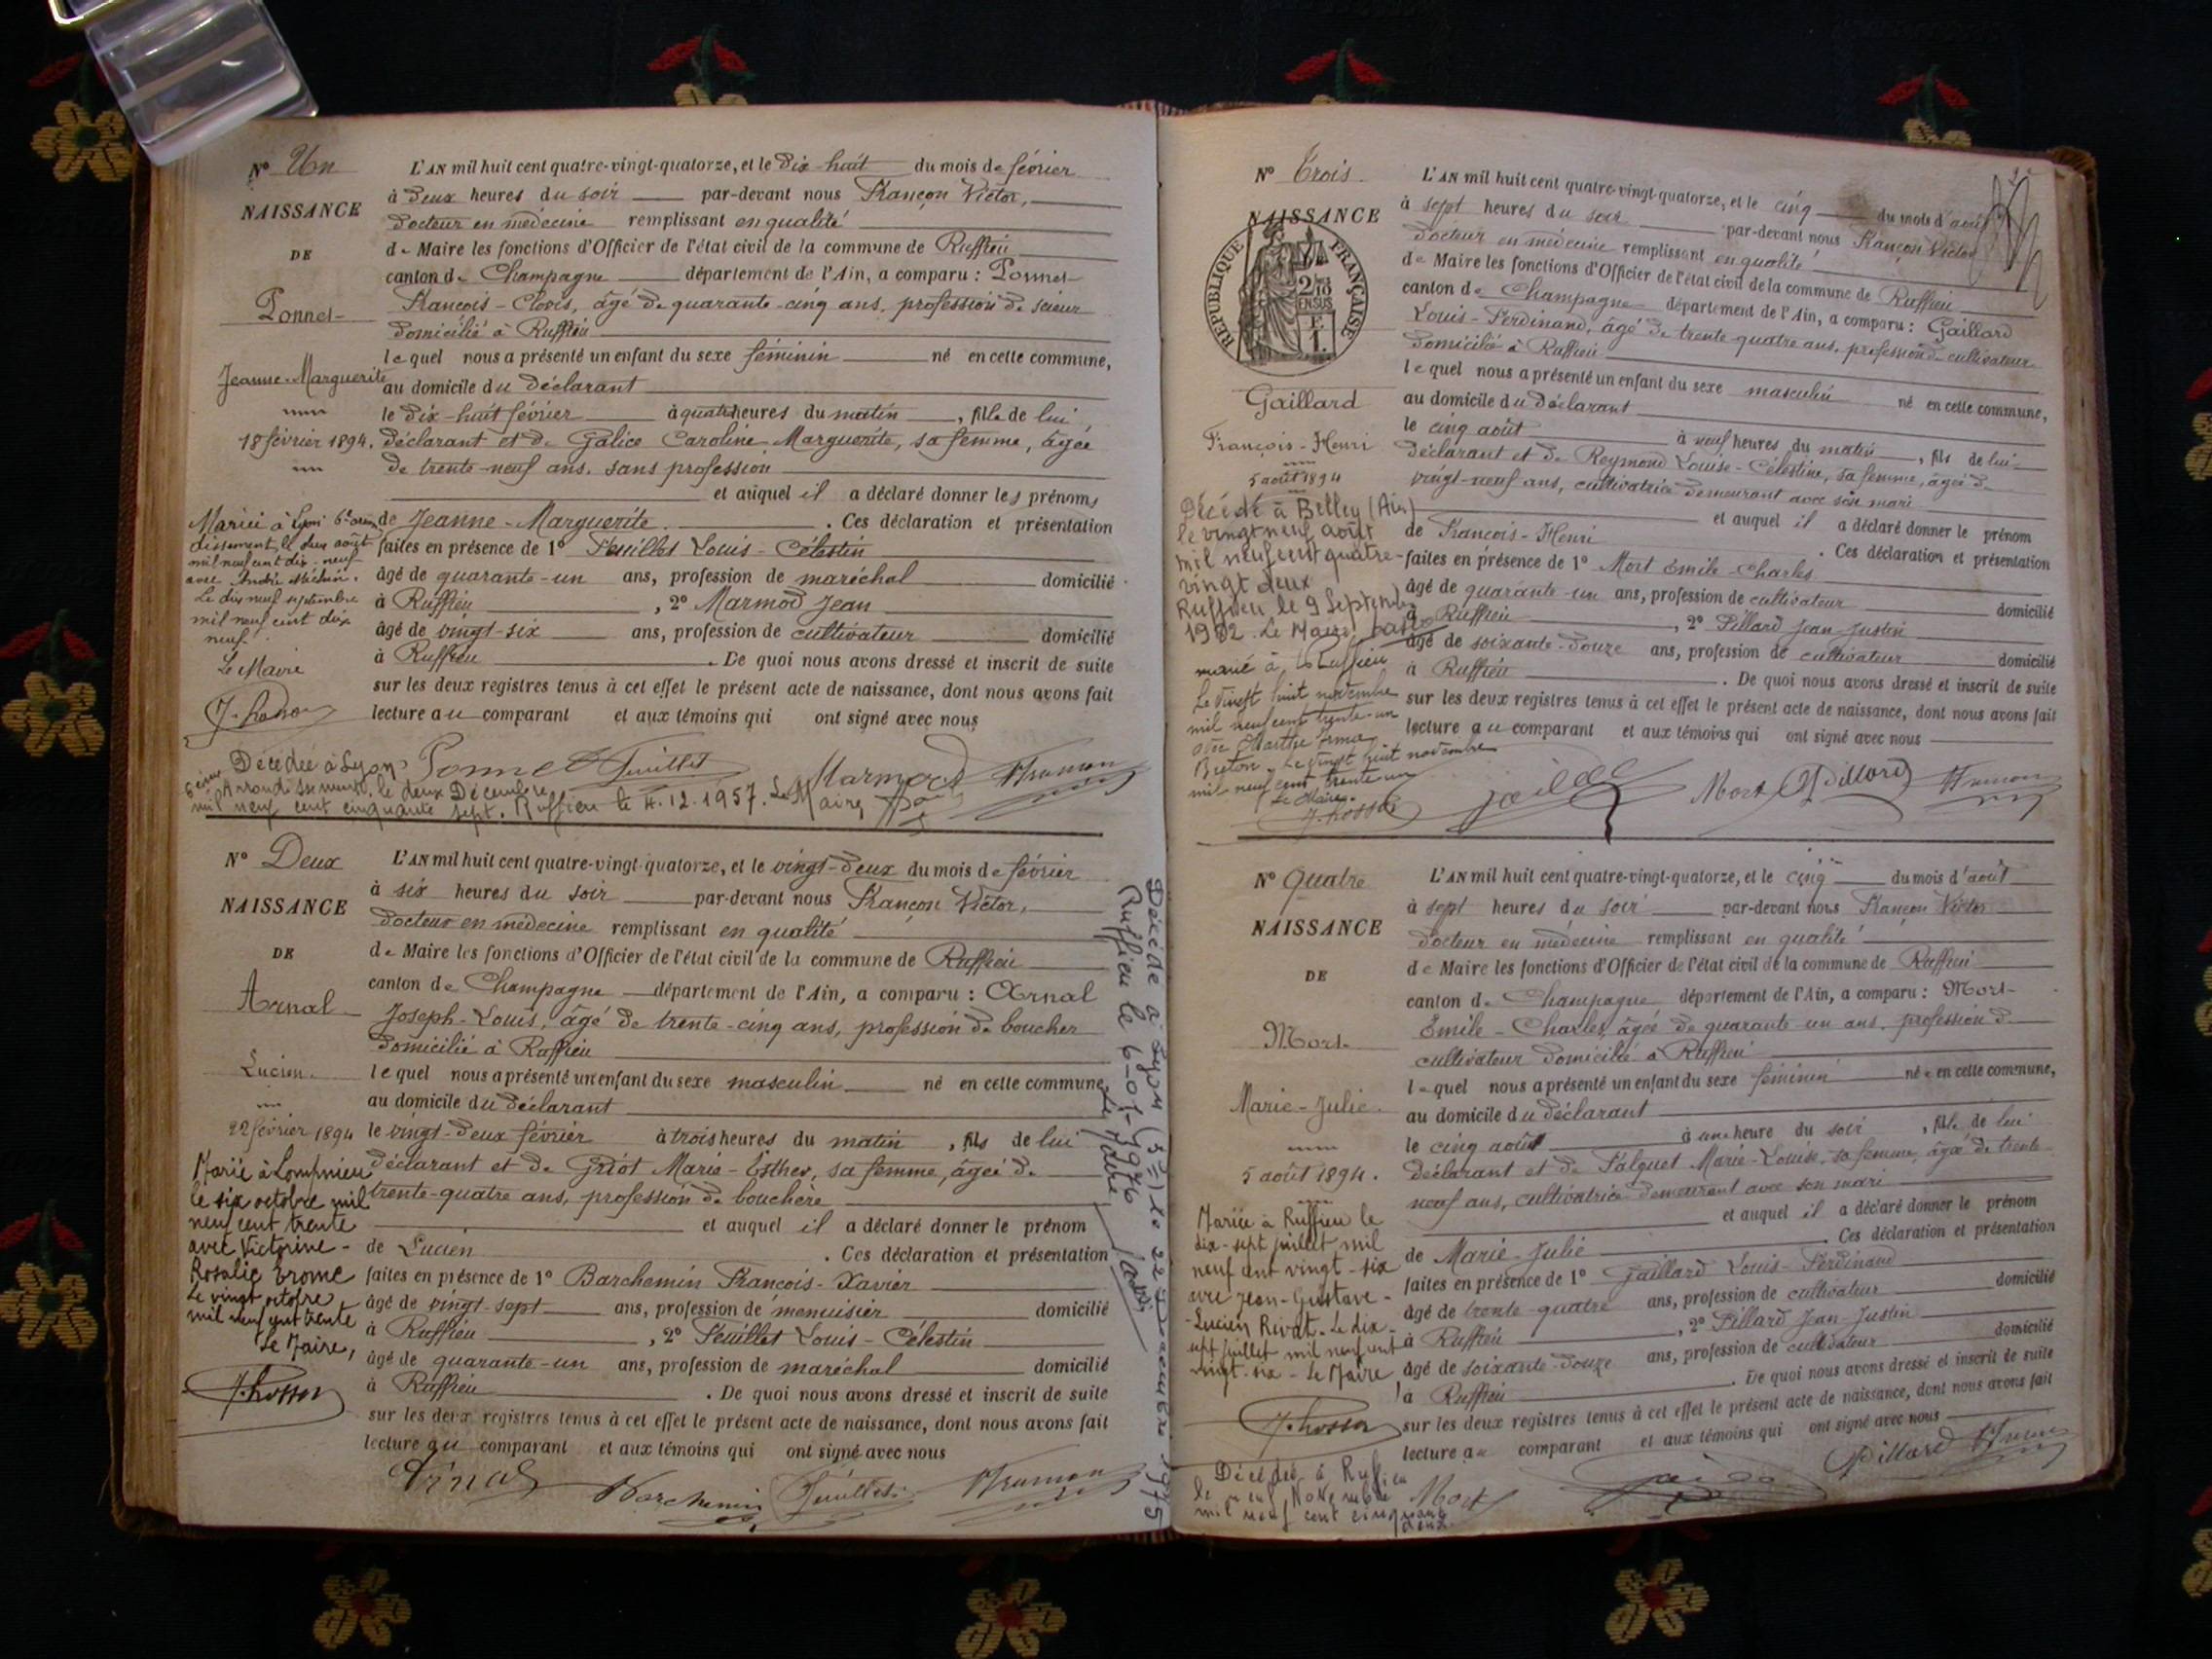 N° Un
NAISSANCE
DE
Ponnet
Jeanne-Marguerite
18 février 1894.
L'AN mil huit cent quatre-vingt-quatorze, et le dix-huit du mois de février
à deux heures du soir par-devant nous Françon Victor,
docteur en médecine remplissant en qualité
de Maire les fonctions d'Officier de l'état civil de la commune de Ruffieu
canton de Champagne département de l'Ain, a comparu : Ponnet
François-Clovis, âgé de quarante-cinq ans, profession de scieur
domicilié à Ruffieu
lequel nous a présenté un enfant du sexe féminin né en cette commune,
au domicile du déclarant
le dix-huit février à quatre heures du matin, fille de lui
déclarant et de Galice Caroline Marguerite, sa femme, âgée
de trente-neuf ans, sans profession
et auquel il a déclaré donner les prénoms
de Jeanne-Marguerite. Ces déclaration et présentation
faites en présence de 1° Feuillet Louis-Célestin
âgé de quarante-un ans, profession de maréchal domicilié
à Ruffieu, 2° Marmod Jean
âgé de vingt-six ans, profession de cultivateur domicilié
à Ruffieu. De quoi nous avons dressé et inscrit de suite
sur les deux registres tenus à cet effet le présent acte de naissance, dont nous avons fait
lecture au comparant et aux témoins qui ont signé avec nous
Mariée à Lyon 6e arron
dissement, le deux août
mil neuf cent dix-neuf
avec André Méchin.
Le dix neuf septembre
mil neuf cent dix
neuf.
Le Maire
Ponnet Feuillet Marmod Françon
Décédée à Lyon
6ème Arrondissement, le deux Décembre
mil neuf cent cinquante sept. Ruffieu le 4.12.1957. Le Maire
N° Deux
NAISSANCE
DE
Arnal
Lucien.
22 février 1894
L'AN mil huit cent quatre-vingt-quatorze, et le vingt-deux du mois de février
à six heures du soir par-devant nous Françon Victor,
docteur en médecine remplissant en qualité
de Maire les fonctions d'Officier de l'état civil de la commune de Ruffieu
canton de Champagne département de l'Ain, a comparu : Arnal
Joseph-Louis, âgé de trente-cinq ans, profession de boucher
domicilié à Ruffieu
lequel nous a présenté un enfant du sexe masculin né en cette commune,
au domicile du déclarant
le vingt-deux février à trois heures du matin, fils de lui
déclarant et de Griot Marie-Esther, sa femme, âgée de
trente-quatre ans, profession de bouchère
et auquel il a déclaré donner le prénom
de Lucien. Ces déclaration et présentation
faites en présence de 1° Barchemin François-Xavier
âgé de vingt-sept ans, profession de menuisier domicilié
à Ruffieu, 2° Feuillet Louis-Célestin
âgé de quarante-un ans, profession de maréchal domicilié
à Ruffieu. De quoi nous avons dressé et inscrit de suite
sur les deux registres tenus à cet effet le présent acte de naissance, dont nous avons fait
lecture au comparant et aux témoins qui ont signé avec nous
Marié à Lompnieu
le six octobre mil
neuf cent trente
avec Victorine-
Rosalie Brome
Le vingt octobre
mil neuf cent trente
Le Maire,
Arnal Barchemin Feuillet Françon
Décédé à Lyon (3e) le 22 Décembre 1975
Ruffieu le 6-01-1976
Le Maire
N° Trois.
NAISSANCE
REPUBLIQUE FRANÇAISE
EN SUS
Gaillard
François-Henri
5 août 1894
L'AN mil huit cent quatre-vingt-quatorze, et le cinq du mois d'août
à sept heures du soir par-devant nous Françon Victor
docteur en médecine remplissant en qualité
de Maire les fonctions d'Officier de l'état civil de la commune de Ruffieu
canton de Champagne département de l'Ain, a comparu : Gaillard
Louis-Ferdinand, âgé de trente-quatre ans, profession de cultivateur
domicilié à Ruffieu
lequel nous a présenté un enfant du sexe masculin né en cette commune,
au domicile du déclarant
le cinq août à neuf heures du matin, fils de lui
déclarant et de Reymond Louise-Célestine, sa femme, âgée de
vingt-neuf ans, cultivatrice demeurant avec son mari
et auquel il a déclaré donner le prénom
de François-Henri. Ces déclaration et présentation
faites en présence de 1° Mort Emile-Charles
âgé de quarante-un ans, profession de cultivateur domicilié
à Ruffieu, 2° Pillard Jean-Justin
âgé de soixante-douze ans, profession de cultivateur domicilié
à Ruffieu. De quoi nous avons dressé et inscrit de suite
sur les deux registres tenus à cet effet le présent acte de naissance, dont nous avons fait
lecture au comparant et aux témoins qui ont signé avec nous
Décédé à Belley (Ain)
le vingt neuf août
mil neuf cent quatre-
vingt deux
Ruffieu le 9 Septembre
1982. Le Maire,
marié à Ruffieu
Le vingt huit novembre
mil neuf cent trente-un
avec Marthe Irma
Breton. Le vingt huit novembre
mil neuf cent trente-un
Le Maire.
Mort Pillard Françon
N° Quatre
NAISSANCE
DE
Mort
Marie-Julie.
5 août 1894.
L'AN mil huit cent quatre-vingt-quatorze, et le cinq du mois d'août
à sept heures du soir par-devant nous Françon Victor
docteur en médecine remplissant en qualité
de Maire les fonctions d'Officier de l'état civil de la commune de Ruffieu
canton de Champagne département de l'Ain, a comparu : Mort
Emile-Charles, âgé de quarante-un ans, profession de
cultivateur domicilié à Ruffieu
lequel nous a présenté un enfant du sexe féminin née en cette commune,
au domicile du déclarant
le cinq août à une heure du soir, fille de lui
déclarant et de Falquet Marie-Louise, sa femme, âgée de trente
neuf ans, cultivatrice demeurant avec son mari
et auquel il a déclaré donner le prénom
de Marie-Julie. Ces déclaration et présentation
faites en présence de 1° Gaillard Louis-Ferdinand
âgé de trente-quatre ans, profession de cultivateur domicilié
à Ruffieu, 2° Pillard Jean-Justin
âgé de soixante-douze ans, profession de cultivateur domicilié
à Ruffieu. De quoi nous avons dressé et inscrit de suite
sur les deux registres tenus à cet effet le présent acte de naissance, dont nous avons fait
lecture au comparant et aux témoins qui ont signé avec nous
Mariée à Ruffieu le
dix-sept juillet mil
neuf cent vingt-six
avec Jean-Gustave-
Lucien Rivat. Le dix-
sept juillet mil neuf cent
vingt-six - Le Maire
Décédée à Ruffieu
le neuf Novembre
mil neuf cent cinquante
deux.
Mort Pillard Françon